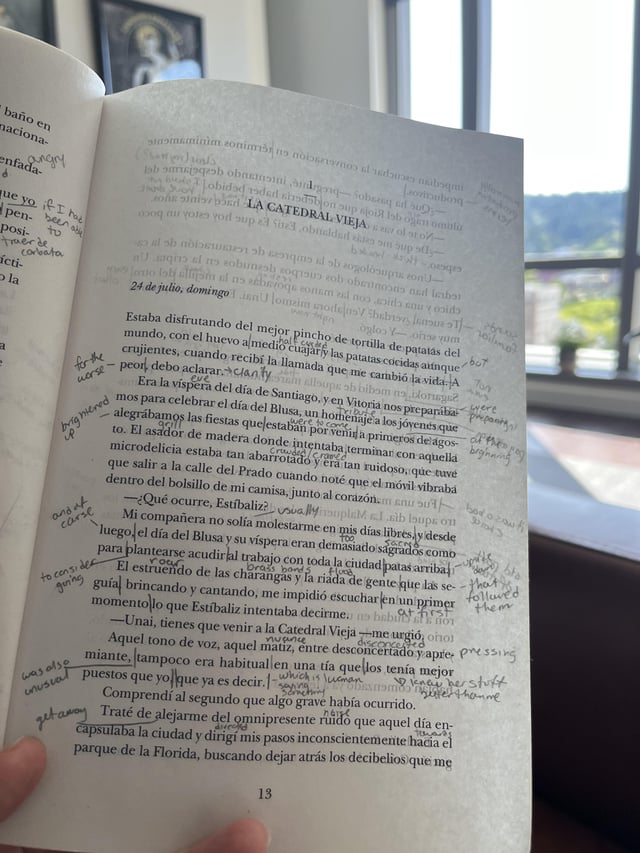 baño en
naciona-
angry
enfada-
que yo if I had
been able
to
LA CATEDRAL VIEJA
24 de julio, domingo
Estaba disfrutando del mejor pincho de tortilla de patatas del
half cooked
mundo, con el huevo a medio cuajar y las patatas cocidas aunque
crujientes, cuando recibí la llamada que me cambió la vida. A
but
for the
worse
peor, debo aclarar. → clarify
eve
Era la víspera del día de Santiago, y en Vitoria nos preparába-
were
preparing
mos para celebrar el día del Blusa, un homenaje a los jóvenes que
tribute
brightened
up
alegrábamos las fiestas que estaban por venir a primeros de agos-
were to come
at the
beginning
grill
to. El asador de madera donde intentaba terminar con aquella
microdelicia estaba tan abarrotado y era tan ruidoso, que tuve
crowded / crammed
que salir a la calle del Prado cuando noté que el móvil vibraba
dentro del bolsillo de mi camisa, junto al corazón.
—¿Qué ocurre, Estíbaliz?
usually
Mi compañera no solía molestarme en mis días libres, y desde
luego, el día del Blusa y su víspera eran demasiado sagrados como
too sacred
para plantearse acudir al trabajo con toda la ciudad patas arriba.
to consider
going
roar brass bands flood
El estruendo de las charangas y la riada de gente que las se-
that
followed
them
guía, brincando y cantando, me impidió escuchar en un primer
momento lo que Estíbaliz intentaba decirme.
at first
—Unai, tienes que venir a la Catedral Vieja —me urgió.
nuance disconcerted
Aquel tono de voz, aquel matiz, entre desconcertado y apre-
pressing
was also
unusual
miante, tampoco era habitual en una tía que los tenía mejor
woman
knew her stuff
better than me
puestos que yo, que ya es decir.
which is
saying
something
Comprendí al segundo que algo grave había ocurrido.
get away
noise
Traté de alejarme del omnipresente ruido que aquel día en-
capsulaba la ciudad y dirigí mis pasos inconscientemente hacia el
directed towards
parque de la Florida, buscando dejar atrás los decibelios que me
13